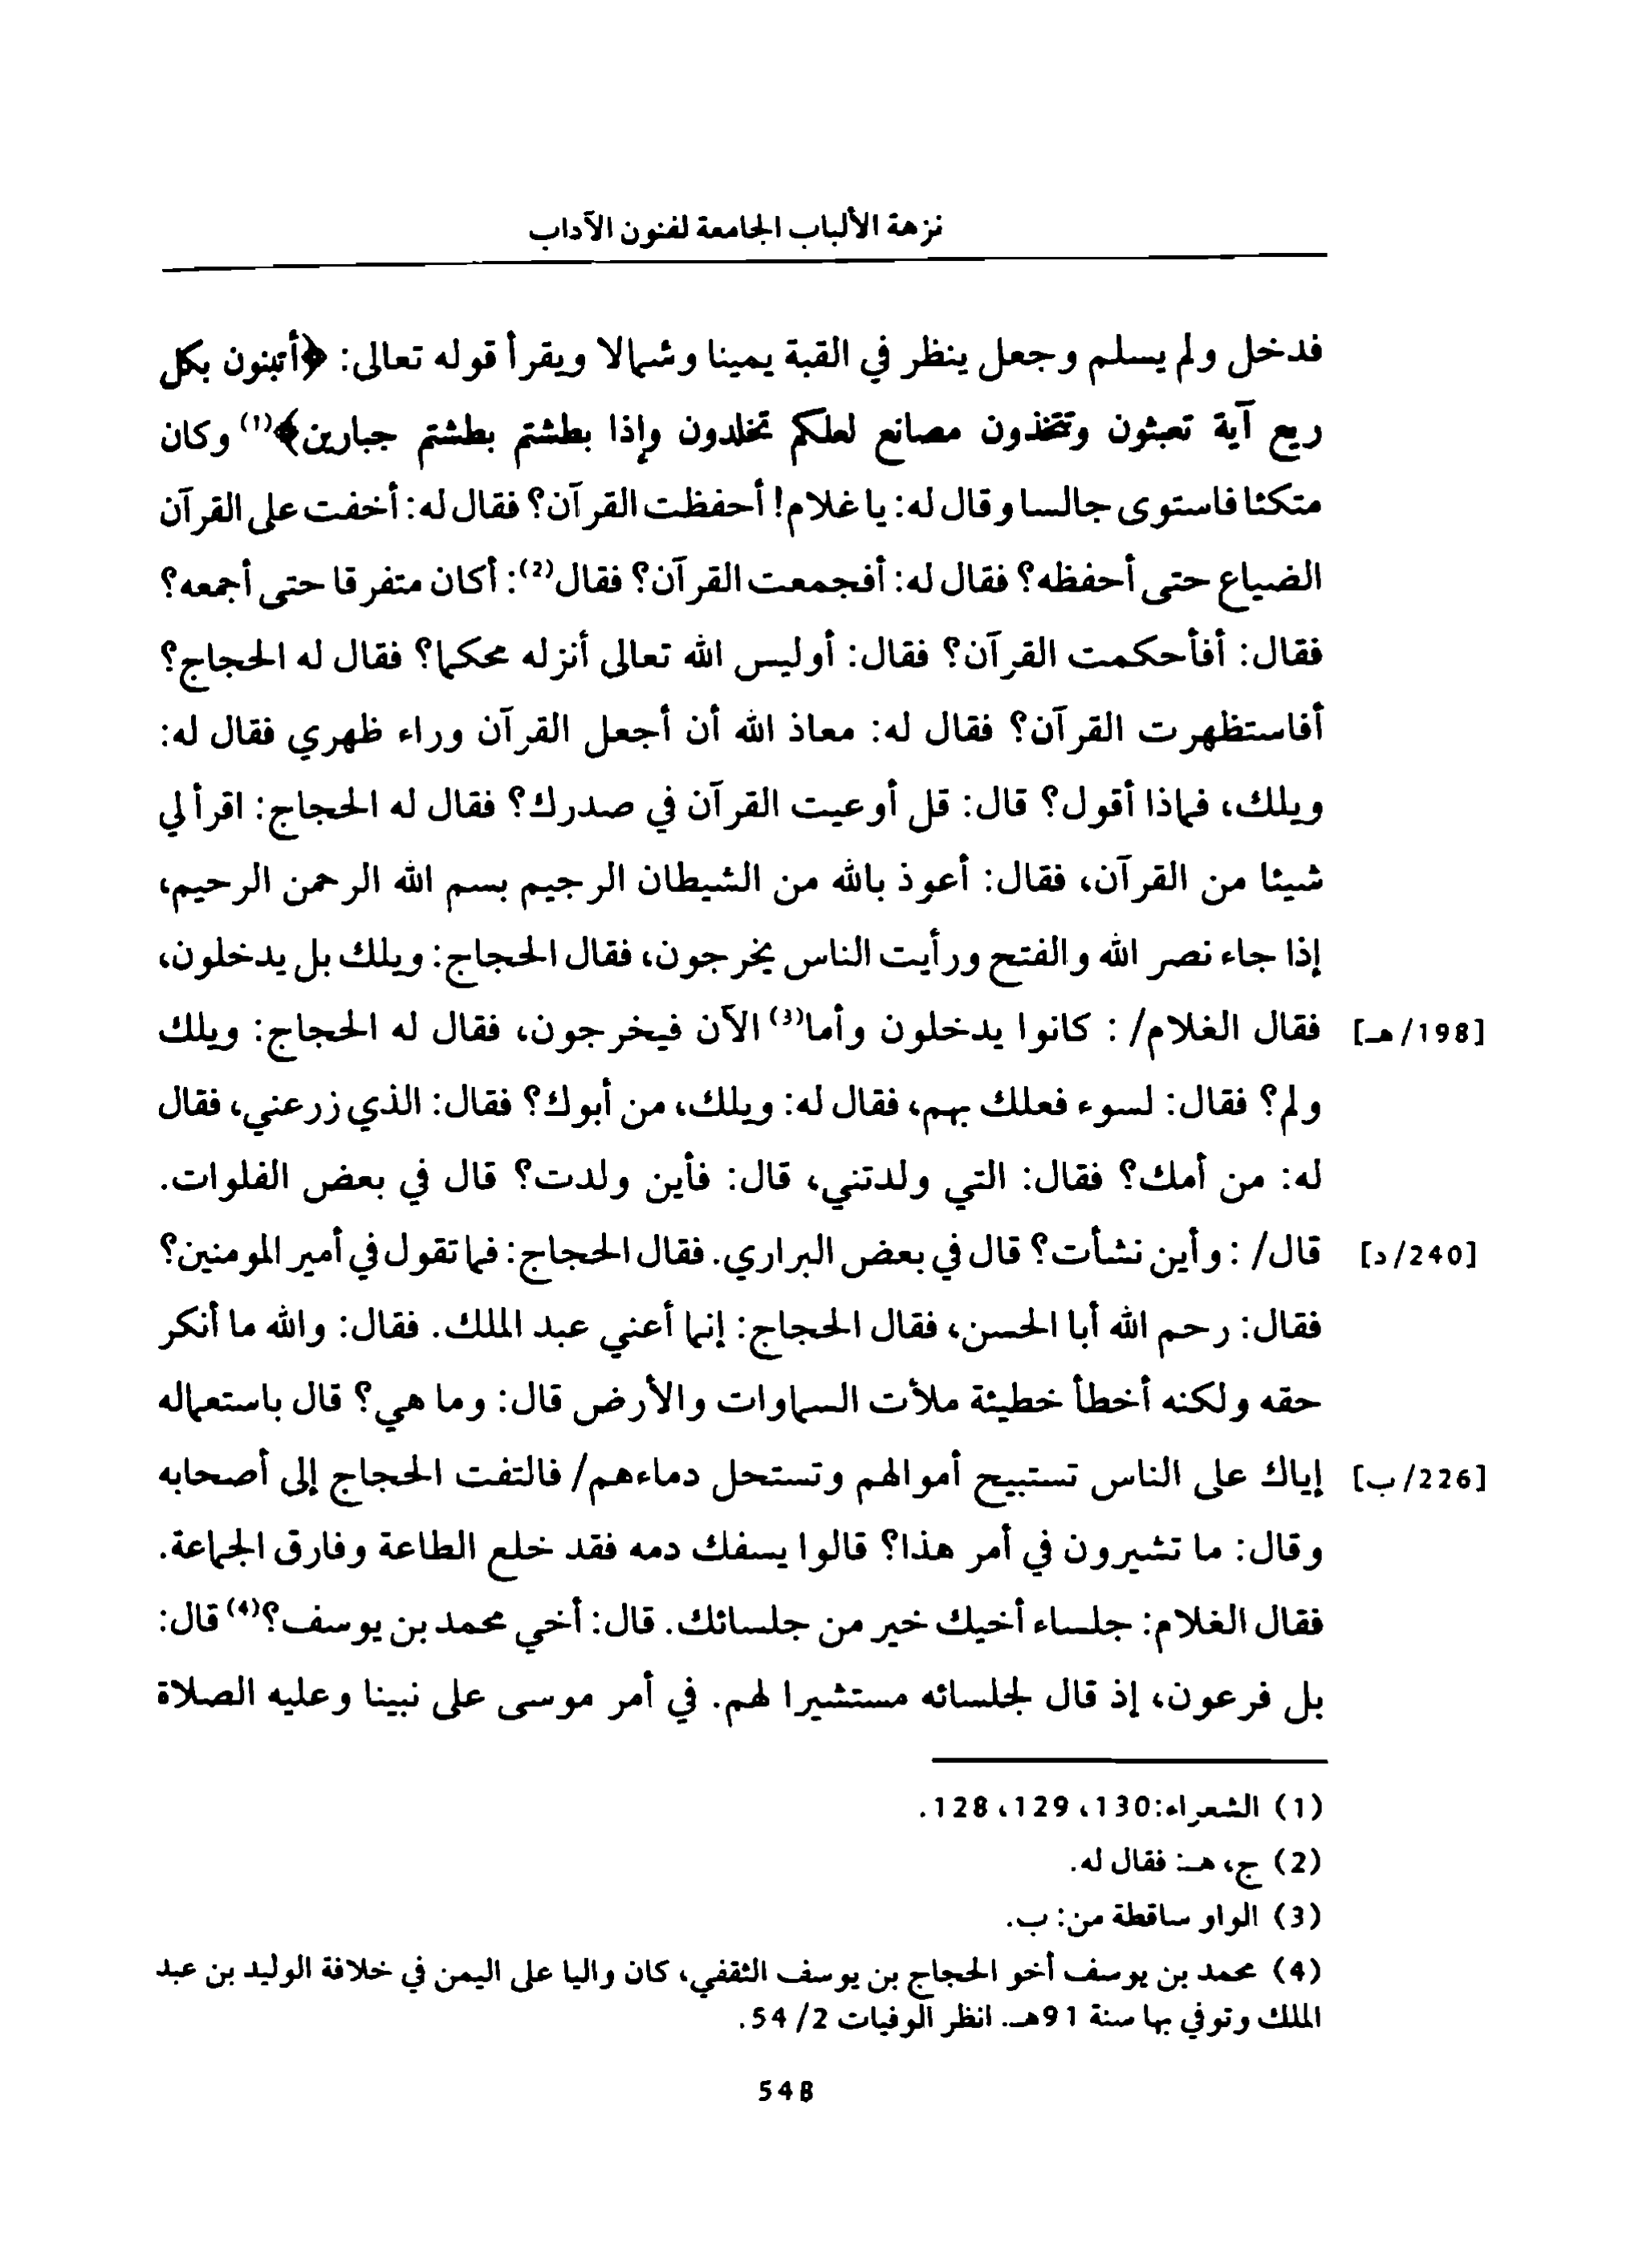 نزهة الألباب الجامعة لفنون الآداب
فدخل ولم يسلم وجعل ينظر في القبة يمينا وشمالا ويقرأ قوله تعالى: ﴿أتبنون بكل
ريع آية تعبثون وتتخذون مصانع لعلكم تخلدون وإذا بطشتم بطشتم جبارين﴾(1) وكان
متكئا فاستوى جالسا وقال له: يا غلام! أحفظت القرآن؟ فقال له: أخفت على القرآن
الضياع حتى أحفظه؟ فقال له: أفجمعت القرآن؟ فقال(2): أكان متفرقا حتى أجمعه؟
فقال: أفأحكمت القرآن؟ فقال: أوليس الله تعالى أنزله محكما؟ فقال له الحجاج؟
أفاستظهرت القرآن؟ فقال له: معاذ الله أن أجعل القرآن وراء ظهري فقال له:
ويلك، فماذا أقول؟ قال: قل أوعيت القرآن في صدرك؟ فقال له الحجاج: اقرأ لي
شيئا من القرآن، فقال: أعوذ بالله من الشيطان الرجيم بسم الله الرحمن الرحيم،
إذا جاء نصر الله والفتح ورأيت الناس يخرجون، فقال الحجاج: ويلك بل يدخلون،
[198/هـ] فقال الغلام/ : كانوا يدخلون وأما(3) الآن فيخرجون، فقال له الحجاج: ويلك
ولم؟ فقال: لسوء فعلك بهم، فقال له: ويلك، من أبوك؟ فقال: الذي زرعني، فقال
له: من أمك؟ فقال: التي ولدتني، قال: فأين ولدت؟ قال في بعض الفلوات.
[240/د] قال/ : وأين نشأت؟ قال في بعض البراري. فقال الحجاج: فما تقول في أمير المومنين؟
فقال: رحم الله أبا الحسن، فقال الحجاج: إنما أعني عبد الملك. فقال: والله ما أنكر
حقه ولكنه أخطأ خطيئة ملأت السماوات والأرض قال: وما هي؟ قال باستعماله
[226/ب] إياك على الناس تستبيح أموالهم وتستحل دماءهم/ فالتفت الحجاج إلى أصحابه
وقال: ما تشيرون في أمر هذا؟ قالوا يسفك دمه فقد خلع الطاعة وفارق الجماعة.
فقال الغلام: جلساء أخيك خير من جلسائك. قال: أخي محمد بن يوسف؟(4) قال:
بل فرعون، إذ قال لجلسائه مستشيرا لهم. في أمر موسى على نبينا وعليه الصلاة
(1) الشعراء:130، 129، 128.
(2) ج، هـ: فقال له.
(3) الواو ساقطة من: ب.
(4) محمد بن يوسف أخو الحجاج بن يوسف الثقفي، كان واليا على اليمن في خلافة الوليد بن عبد
الملك وتوفي بها سنة 91هـ. انظر الوفيات 2/ 54.
548